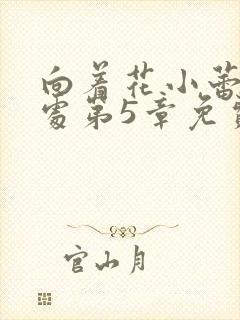 向着花小蕾
处第5章免费
官山月